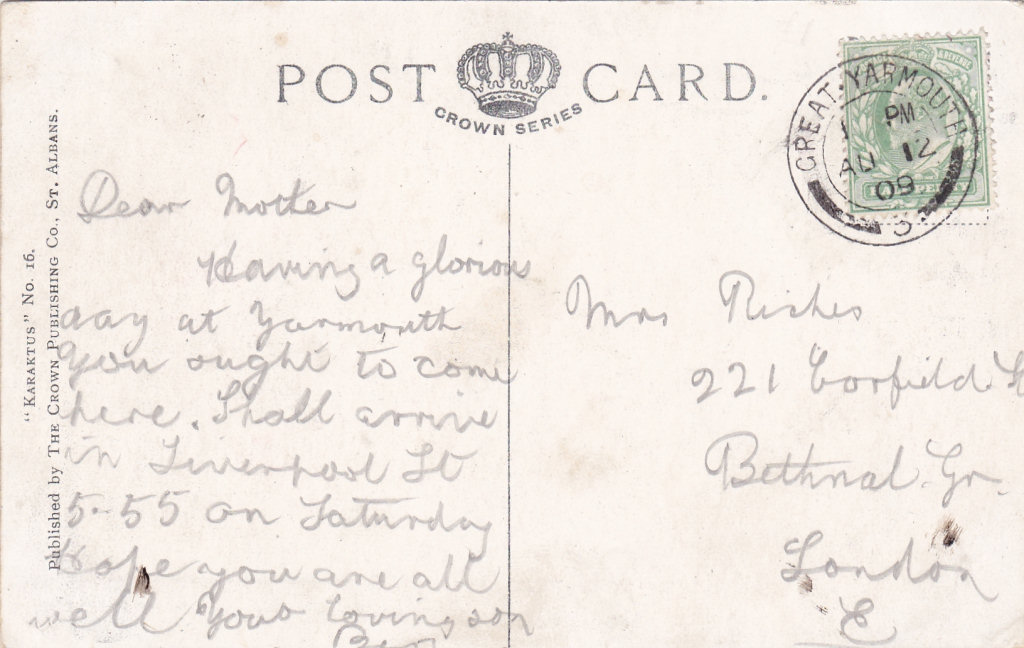 POST CARD.
CROWN SERIES
"KARAKTUS" No. 16.
Published by THE CROWN PUBLISHING Co., ST. ALBANS.
GREAT YARMOUTH
PM
AU 12
09
3
Dear Mother
Having a glorious
day at Yarmouth
you ought to come
here. Shall arrive
in Liverpool St
5-55 on Saturday
Hope you are all
well Your loving son
Mrs Riches
221 Corfield St
Bethnal Gr.
London
E